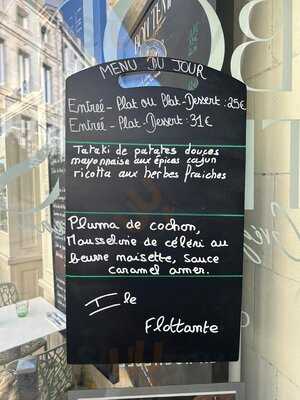 MENU DU JOUR
Entrée - Plat ou Plat - Dessert : 25€
Entrée - Plat - Dessert : 31€
Tataki de patates douces
mayonnaise aux épices cajun
ricotta aux herbes fraiches
Pluma de cochon,
Mousseline de céleri au
beurre noisette, sauce
caramel amer.
Ile
Flottante